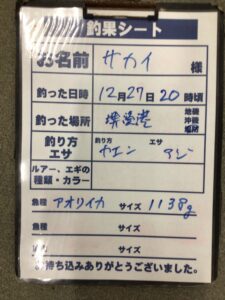 釣果シート
お名前 サカイ 様
釣った日時 12月27日20時頃
釣った場所 堺港 地磯 沖磯 堤防
釣り方 エサ 釣り方 カエン エサ アジ
ルアー、エギの種類・カラー
魚種 アオリイカ サイズ 1138g
魚種 サイズ
魚種 サイズ
お持ち込みありがとうございました。